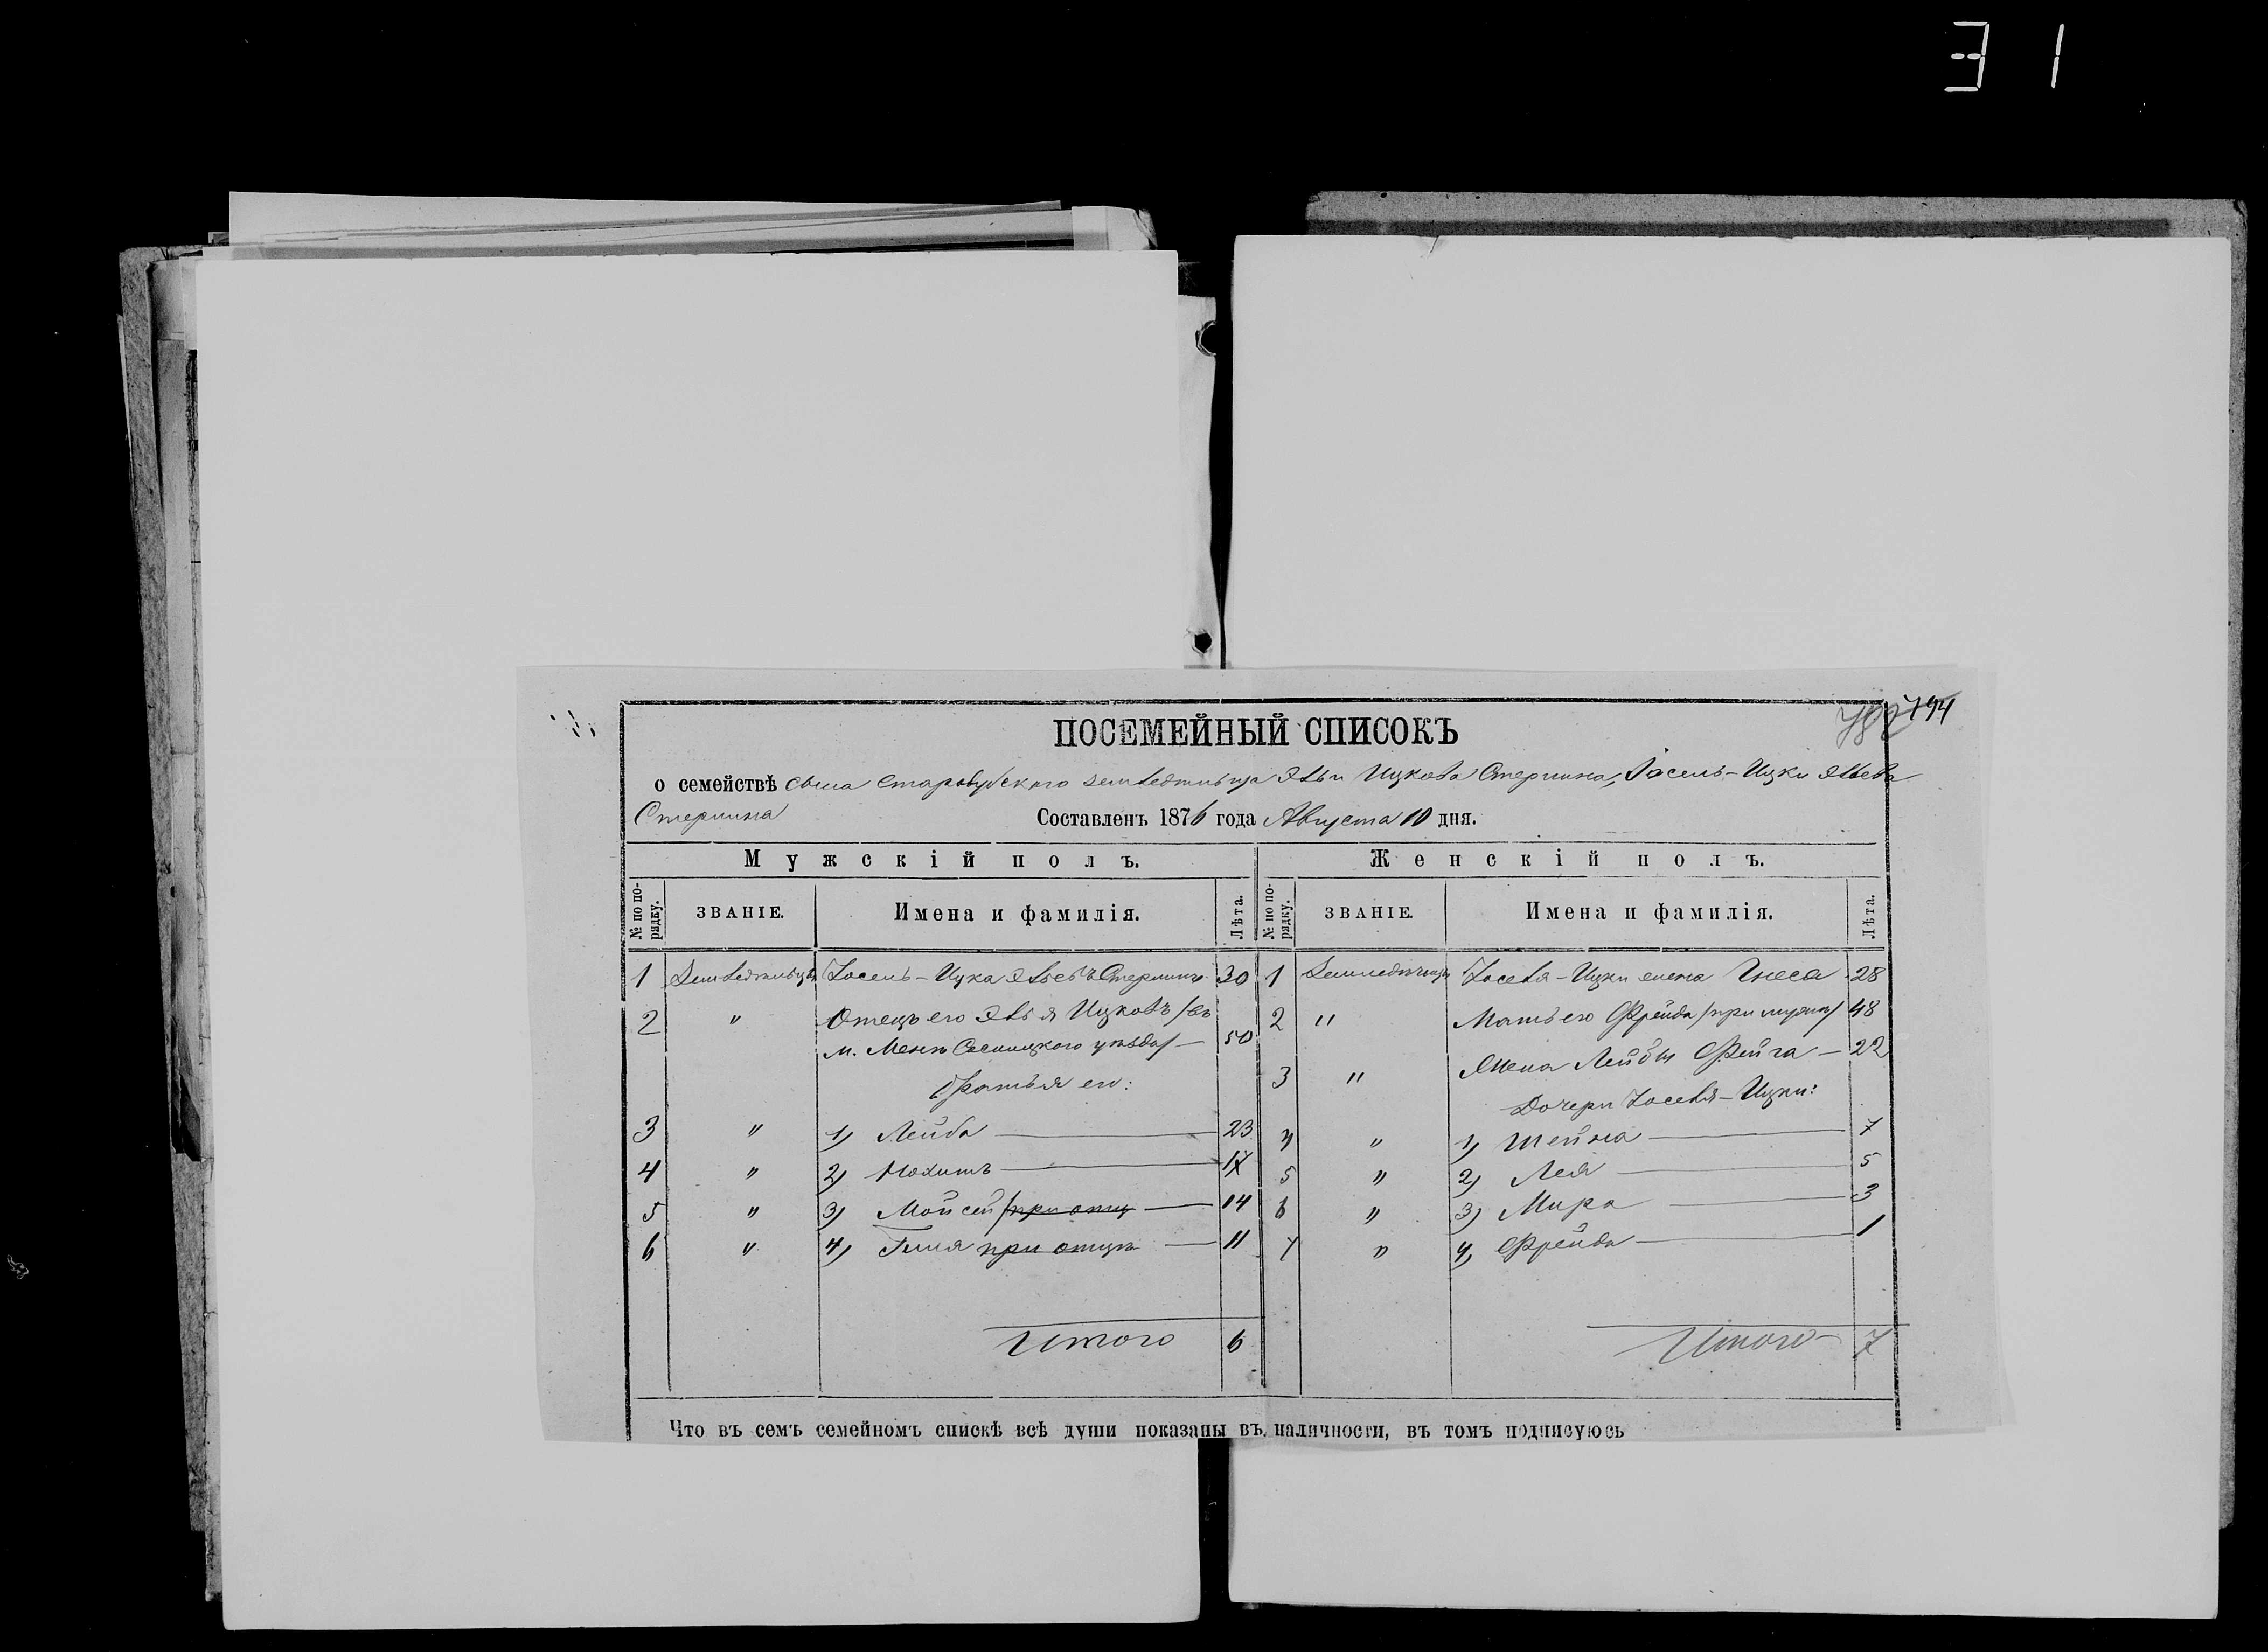 31
782 794
ПОСЕМЕЙНЫЙ СПИСОКЪ
о семействѣ сына Стародубскаго земледѣльца Эльи Ицкова Стерлина, Іосель-Ицки Эльева
Стерлина Составленъ 1876 года Августа 10 дня.
Мужскій полъ. Женскій полъ.
№ по порядку. ЗВАНІЕ. Имена и фамилія. Лѣта. № по порядку. ЗВАНІЕ. Имена и фамилія. Лѣта.
1 Земледѣлецъ Іосель-Ицка Эльевъ Стерлинъ 30 1 Іоселя-Ицки жена Гнеса 28
2 " Отецъ его Элья Ицковъ /въ 2 " Мать его Фрейда /при мужѣ/ 48
м. Менѣ Сосницкого уѣзда/ — 50 3 " Жена Лейбы Фейга — 22
Братья его: Дочери Іоселя-Ицки:
3 " 1) Лейба 23 4 " 1) Шейна 7
4 " 2) 17 5 " 2) Лея 5
5 " 3) Мойсей /при отцѣ 14 6 " 3) Мира 3
6 " 4) при отцѣ 11 7 " 4) Фрейда 1
Итого 6 Итого 7
Что въ семъ семейномъ спискѣ всѣ души показаны въ наличности, въ томъ подписуюсь